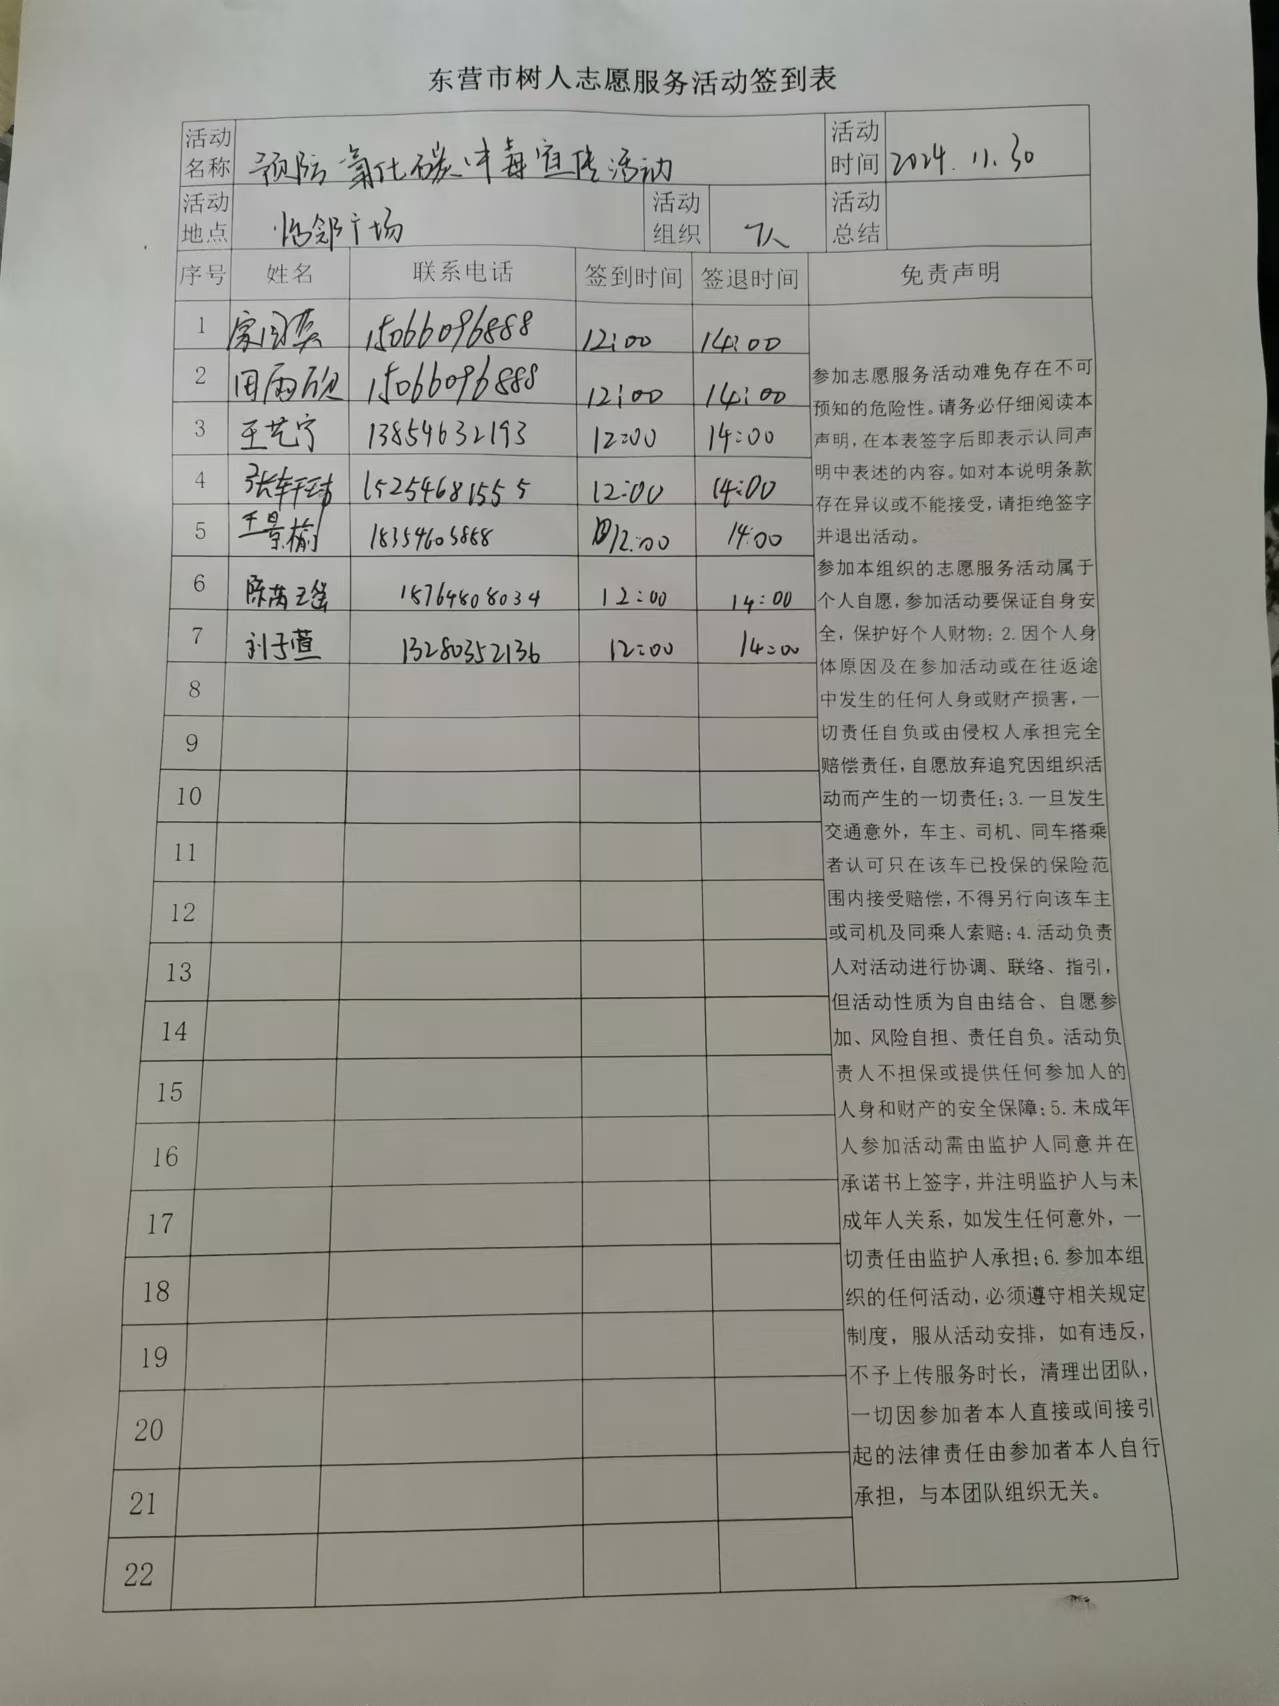 东营市树人志愿服务活动签到表
活动名称 预防氧化碳中毒宣传活动 活动时间 2024.11.30
活动地点 邻广场 活动组织 7人 活动总结
序号 姓名 联系电话 签到时间 签退时间 免责声明
1 15066096888 12:00 14:00
2 田雨 15066096888 12:00 14:00
3 王艺宁 13854632193 12:00 14:00
4 张轩玮 15254681555 12:00 14:00
5 王景榆 18354603868 12:00 14:00
6 陈芮瑶 18764808034 12:00 14:00
7 刘子萱 13280352136 12:00 14:00
8
9
10
11
12
13
14
15
16
17
18
19
20
21
22
参加志愿服务活动难免存在不可
预知的危险性。请务必仔细阅读本
声明,在本表签字后即表示认同声
明中表述的内容。如对本说明条款
存在异议或不能接受,请拒绝签字
并退出活动。
参加本组织的志愿服务活动属于
个人自愿,参加活动要保证自身安
全,保护好个人财物;2.因个人身
体原因及在参加活动或在往返途
中发生的任何人身或财产损害,一
切责任自负或由侵权人承担完全
赔偿责任,自愿放弃追究因组织活
动而产生的一切责任;3.一旦发生
交通意外,车主、司机、同车搭乘
者认可只在该车已投保的保险范
围内接受赔偿,不得另行向该车主
或司机及同乘人索赔;4.活动负责
人对活动进行协调、联络、指引,
但活动性质为自由结合、自愿参
加、风险自担、责任自负。活动负
责人不担保或提供任何参加人的
人身和财产的安全保障;5.未成年
人参加活动需由监护人同意并在
承诺书上签字,并注明监护人与未
成年人关系,如发生任何意外,一
切责任由监护人承担;6.参加本组
织的任何活动,必须遵守相关规定
制度,服从活动安排,如有违反,
不予上传服务时长,清理出团队,
一切因参加者本人直接或间接引
起的法律责任由参加者本人自行
承担,与本团队组织无关。